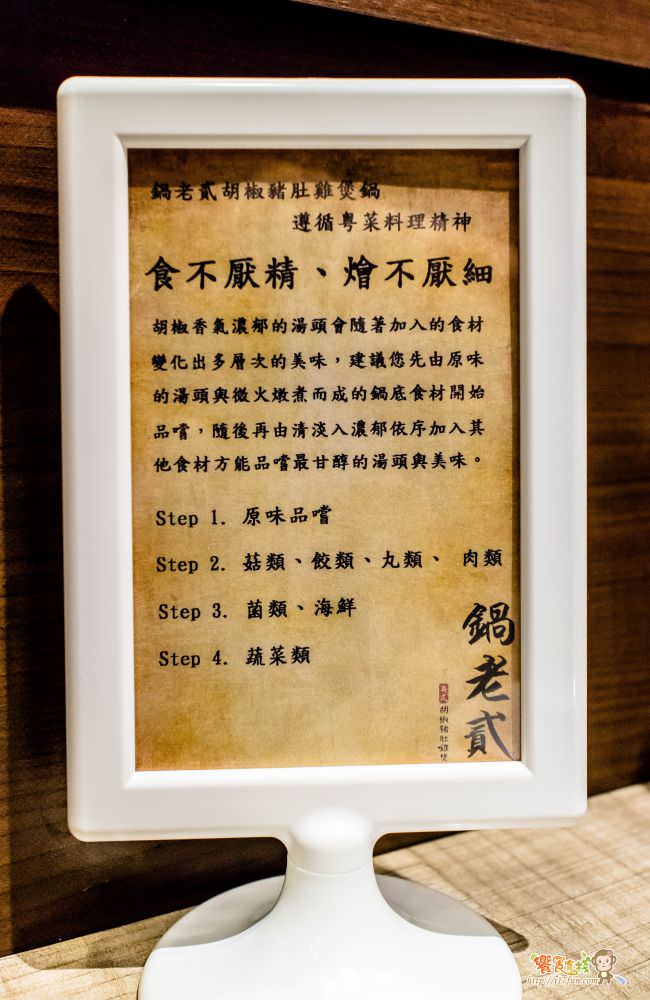 鍋老貳胡椒豬肚雞煲鍋
遵循粵菜料理精神
食不厭精、燴不厭細
胡椒香氣濃郁的湯頭會隨著加入的食材
變化出多層次的美味，建議您先由原味
的湯頭與微火燉煮而成的鍋底食材開始
品嚐，隨後再由清淡入濃郁依序加入其
他食材方能品嚐最甘醇的湯頭與美味。
Step 1. 原味品嚐
Step 2. 菇類、餃類、丸類、 肉類
Step 3. 菌類、海鮮
Step 4. 蔬菜類
鍋老貳
胡椒豬肚雞煲
http://i17fun.com/